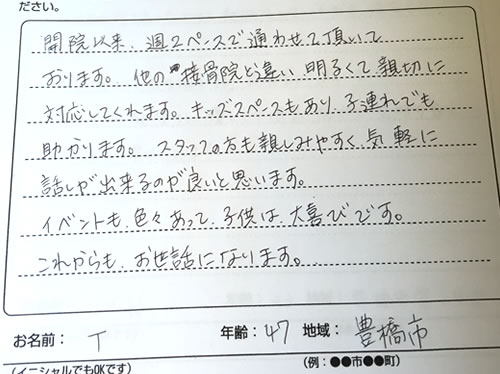 ださい。
開院以来、週2ペースで通わせて頂いて
おります。他の接骨院と違い、明るくて親切に
対応してくれます。キッズスペースもあり、子連れでも
助かります。スタッフの方も親しみやすく、気軽に
話しが出来るのが良いと思います。
イベントも、色々あって、子供は、大喜びです。
これからも、お世話になります。
お名前: T 年齢: 47 地域: 豊橋市
(イニシャルでもOKです) (例:●●市●●町)